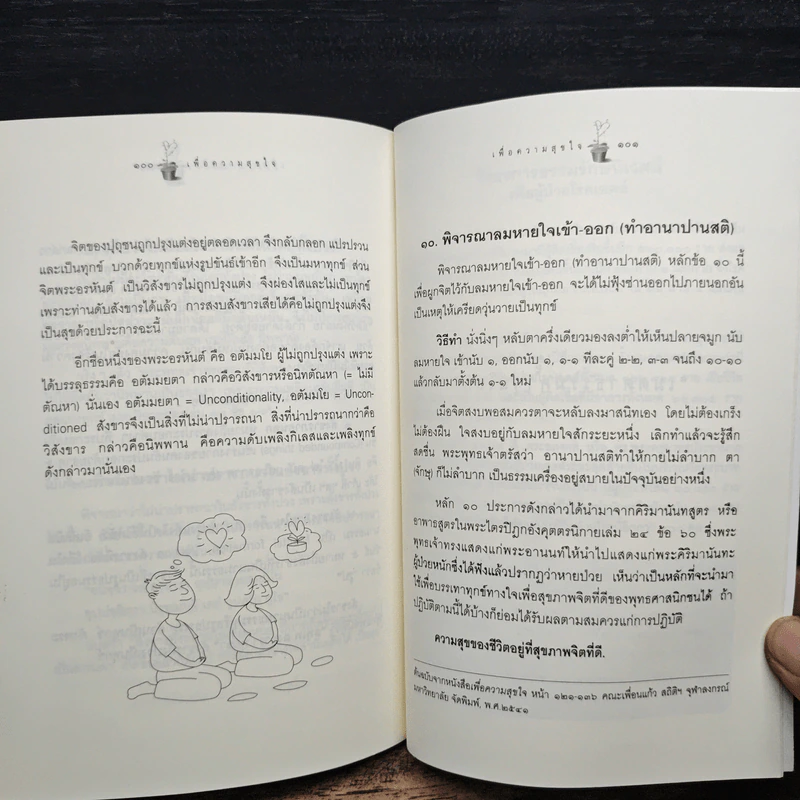 ๑๐๐ เพื่อความสุขใจ
จิตของปุถุชนถูกปรุงแต่งอยู่ตลอดเวลา จึงกลับกลอก แปรปรวน
และเป็นทุกข์ บวกด้วยทุกข์แห่งรูปขันธ์เข้าอีก จึงเป็นมหาทุกข์ ส่วน
จิตพระอรหันต์ เป็นวิสังขารไม่ถูกปรุงแต่ง จึงผ่องใสและไม่เป็นทุกข์
เพราะท่านดับสังขารได้แล้ว การสงบสังขารเสียได้คือไม่ถูกปรุงแต่งจึง
เป็นสุขด้วยประการฉะนี้
อีกชื่อหนึ่งของพระอรหันต์ คือ อตัมมโย ผู้ไม่ถูกปรุงแต่ง เพราะ
ได้บรรลุธรรมคือ อตัมมยตา กล่าวคือวิสังขารหรือนิทตัณหา (= ไม่มี
ตัณหา) นั่นเอง อตัมมยตา = Unconditionality, อตัมมโย = Uncon-
ditioned สังขารจึงเป็นสิ่งที่ไม่น่าปรารถนา สิ่งที่น่าปรารถนากว่าคือ
วิสังขาร กล่าวคือนิพพาน คือความดับเพลิงกิเลสและเพลิงทุกข์
ดังกล่าวมานั่นเอง
เพื่อความสุขใจ ๑๐๑
๑๐. พิจารณาลมหายใจเข้า-ออก (ทำอานาปานสติ)
พิจารณาลมหายใจเข้า-ออก (ทำอานาปานสติ) หลักข้อ ๑๐ นี้
เพื่อผูกจิตไว้กับลมหายใจเข้า-ออก จะได้ไม่ฟุ้งซ่านออกไปภายนอกอัน
เป็นเหตุให้เครียดวุ่นวายเป็นทุกข์
วิธีทำ นั่งนิ่งๆ หลับตาครึ่งเดียวมองลงต่ำให้เห็นปลายจมูก นับ
ลมหายใจ เข้านับ ๑, ออกนับ ๑, ๑-๑ ทีละคู่ ๒-๒, ๓-๓ จนถึง ๑๐-๑๐
แล้วกลับมาตั้งต้น ๑-๑ ใหม่
เมื่อจิตสงบพอสมควรตาจะหลับลงมาสนิทเอง โดยไม่ต้องเกร็ง
ไม่ต้องฝืน ใจสงบอยู่กับลมหายใจสักระยะหนึ่ง เลิกทำแล้วจะรู้สึก
สดชื่น พระพุทธเจ้าตรัสว่า อานาปานสติทำให้กายไม่ลำบาก ตา
(จักษุ) ก็ไม่ลำบาก เป็นธรรมเครื่องอยู่สบายในปัจจุบันอย่างหนึ่ง
หลัก ๑๐ ประการดังกล่าวได้นำมาจากคิริมานันทสูตร หรือ
อาพาธสูตรในพระไตรปิฎกอังคุตตรนิกายเล่ม ๒๔ ข้อ ๖๐ ซึ่งพระ
พุทธเจ้าทรงแสดงแก่พระอานนท์ให้นำไปแสดงแก่พระคิริมานันทะ
ผู้ป่วยหนักซึ่งได้ฟังแล้วปรากฏว่าหายป่วย เห็นว่าเป็นหลักที่จะนำมา
ใช้เพื่อบรรเทาทุกข์ทางใจเพื่อสุขภาพจิตที่ดีของพุทธศาสนิกชนได้ ถ้า
ปฏิบัติตามนี้ได้บ้างก็ย่อมได้รับผลตามสมควรแก่การปฏิบัติ
ความสุขของชีวิตอยู่ที่สุขภาพจิตที่ดี.
ต้นฉบับจากหนังสือเพื่อความสุขใจ หน้า ๑๒๑-๑๓๖ คณะเพื่อนแก้ว สถิติฯ จุฬาลงกรณ์
มหาวิทยาลัย จัดพิมพ์, พ.ศ.๒๕๔๑